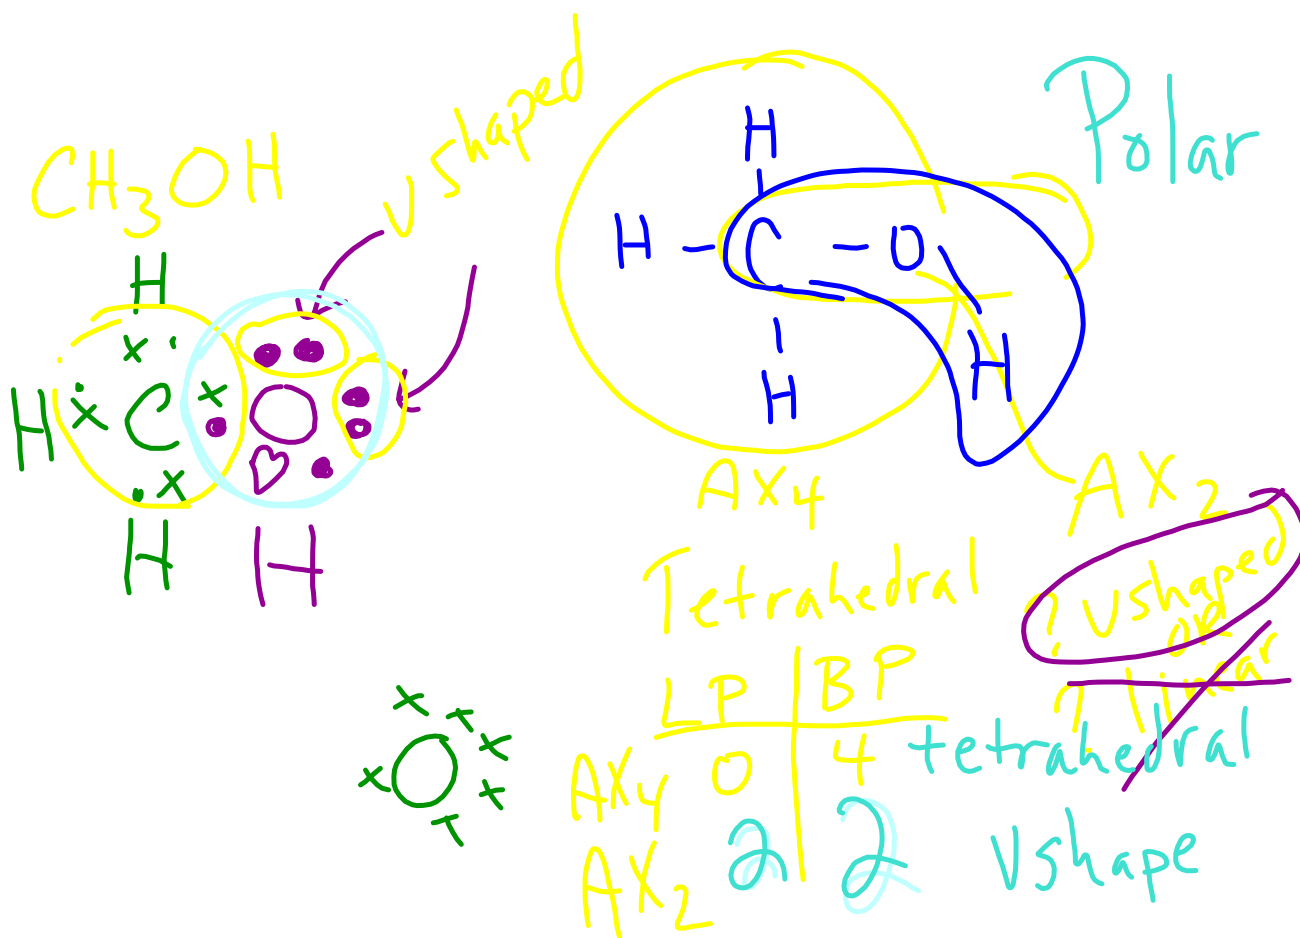 v shaped
Polar
CH3OH
H
H
H C O
H – C – O
H
H
H H
AX4
AX2
Tetrahedral
? v shaped
or
? linear
LP BP
AX4 0 4 tetrahedral
AX2 2 2 v shape
O